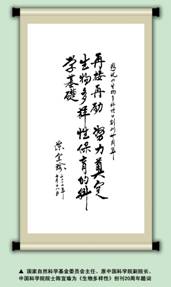 慶祝《生物多样性》创刊二十周年
再接再励 努力奠定
生物多样性保育的科
学基礎
陈宜瑜
▲ 国家自然科学基金委员会主任、原中国科学院副院长、
中国科学院院士陈宜瑜为《生物多样性》创刊20周年题词